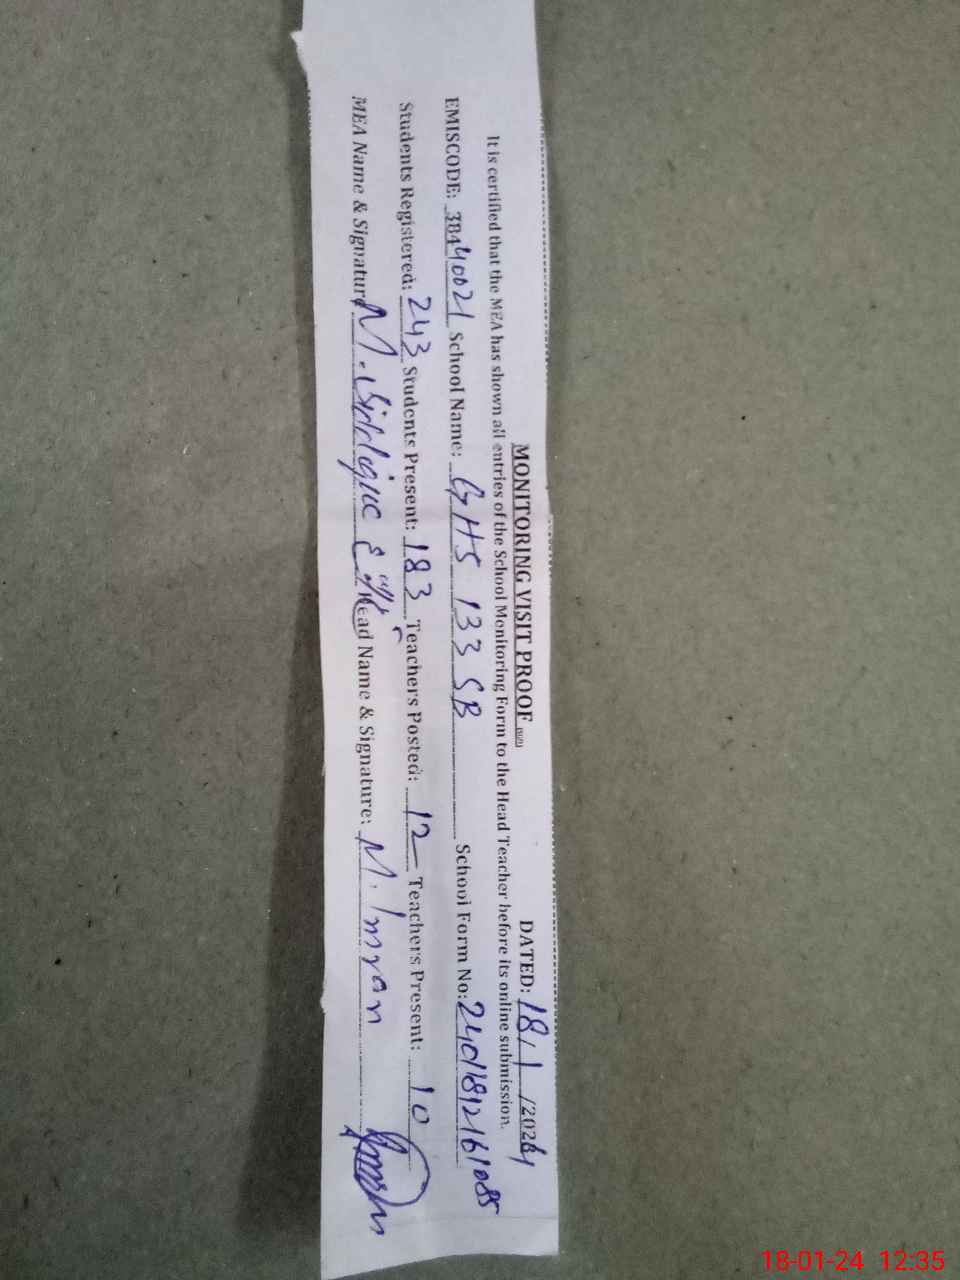 MONITORING VISIT PROOF DATED: 18/1/2024
It is certified that the MEA has shown all entries of the School Monitoring Form to the Head Teacher before its online submission.
EMISCODE: 38440021 School Name: GHS 133 SB School Form No: 24011812161085
Students Registered: 243 Students Present: 183 Teachers Posted: 12 Teachers Present: 10
MEA Name & Signature M. Siddique Head Name & Signature: M. Imran
18-01-24 12:35